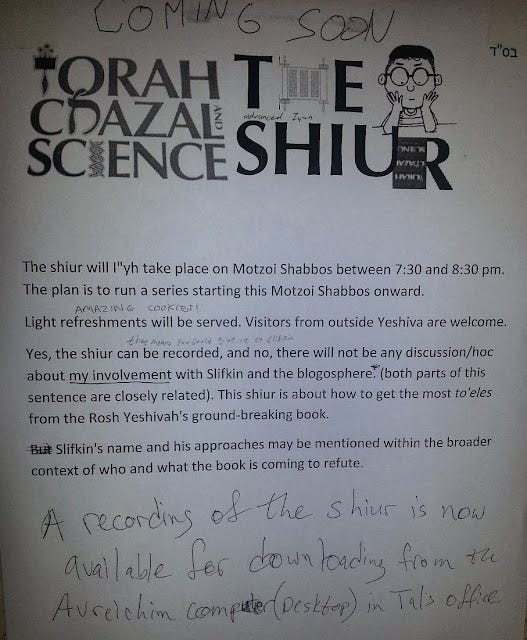 COMING SOON
בס"ד
TORAH CHAZAL AND SCIENCE
THE SHIUR
advanced Iyun
The shiur will I"yh take place on Motzoi Shabbos between 7:30 and 8:30 pm.
The plan is to run a series starting this Motzoi Shabbos onward.
AMAZING COOKIES!!
Light refreshments will be served. Visitors from outside Yeshiva are welcome.
Yes, the shiur can be recorded, and no, there will not be any discussion/hoc
about my involvement with Slifkin and the blogosphere. (both parts of this
sentence are closely related). This shiur is about how to get the most to'eles
from the Rosh Yeshivah's ground-breaking book.
But Slifkin's name and his approaches may be mentioned within the broader
context of who and what the book is coming to refute.
A recording of the shiur is now
available for downloading from the
Avreichim computer (Desktop) in Tal's office.